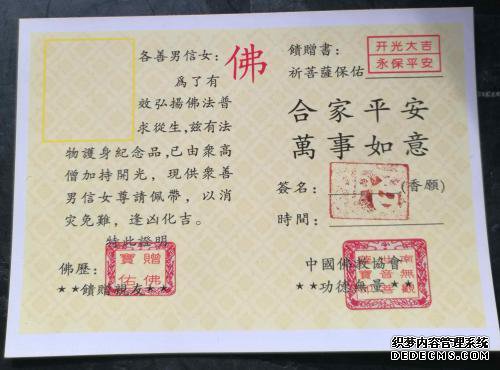 各善男信女:
佛
爲了有
效弘揚佛法普
求從生,兹有法
物護身紀念品,已由衆高
僧加持開光,現供衆善
男信女尊請佩帶,以消
灾免難,逢凶化吉。
特此證明
佛歷:
★★饋贈親友★★
贈寶
佛佑
饋贈書:
祈菩薩保佑
开光大吉
永保平安
合家平安
萬事如意
簽名:
(香願)
時間:
中國佛教協會
★★功德無量★★
南無觀
状师内容管理系统